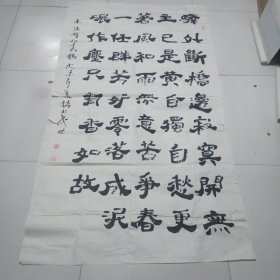 驛外斷橋邊寂寞開無
主已是黄昏獨自愁更
著風和雨無意苦爭春
一任群芳妒零落成泥
碾作塵只有香如故